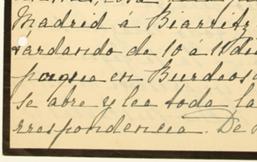 Madrid a Biarritz
tardando de 10 á 11 di
pague en Burdeos
se abre y lee toda la
rrespondencia. De